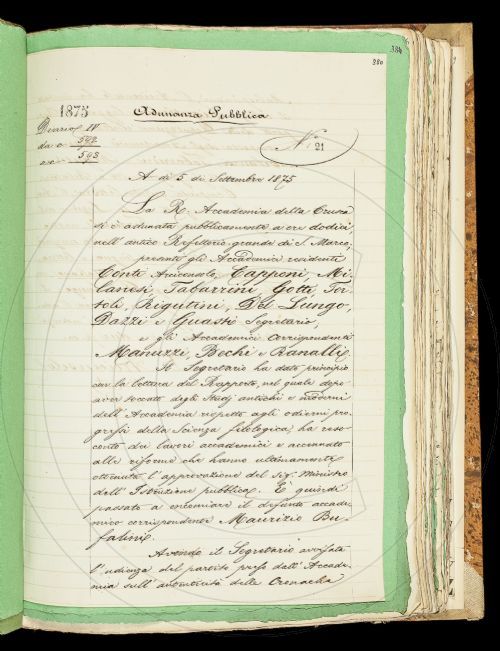 384
380
1875
Adunanza Pubblica
Diario IV
da c. 592
a c. 593
N.° 21
A dì 5 di Settembre 1875
La R. Accademia della Crusca
si è adunata pubblicamente a ore dodici
nell'antico Refettorio grande di S. Marco,
presenti gli Accademici residenti
Conti Arciconsolo, Capponi, Mi-
lanesi, Tabarrini, Gotti, Tor-
toli, Rigutini, Del Lungo,
Dazzi e Guasti Segretario,
e gli Accademici corrispondenti
Manuzzi, Bechi e Ranalli.
Il Segretario ha dato principio
con la lettura del Rapporto, nel quale dopo
aver toccato degli Studj antichi e moderni
dell'Accademia rispetto agli odierni pro-
gressi della Scienza filologica, ha reso
conto dei lavori accademici e accennato
alle riforme che hanno ultimamente
ottenuta l'approvazione del Sig. Ministro
dell'Istruzione pubblica. È quindi
passato a encomiare il defunto accade-
mico corrispondente Maurizio Bu-
falini.
Avendo il Segretario avvisata
l'udienza del partito preso dall'Accade-
mia sull'autenticità della Cronaca